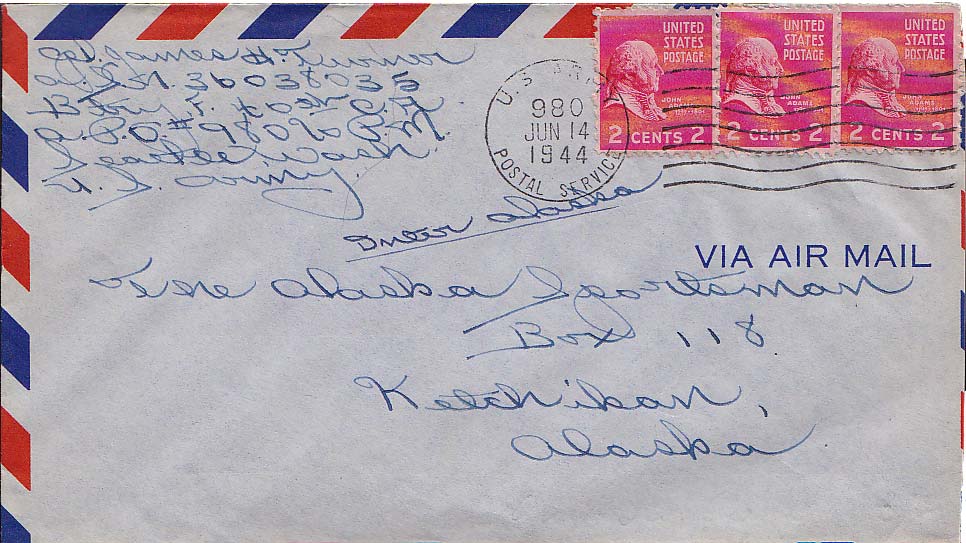 James H. Turner
36038035
Btry F. 260th C.A.
A.P.O. # 980 % P.M.
Seattle Wash.
U. S. Army.
U.S. ARMY
980
JUN 14
1944
POSTAL SERVICE
UNITED STATES POSTAGE
JOHN ADAMS
2 CENTS 2
UNITED STATES POSTAGE
JOHN ADAMS
2 CENTS 2
UNITED STATES POSTAGE
JOHN ADAMS
2 CENTS 2
Inter Alaska
VIA AIR MAIL
The Alaska Sportsman
Box 118
Ketchikan,
Alaska